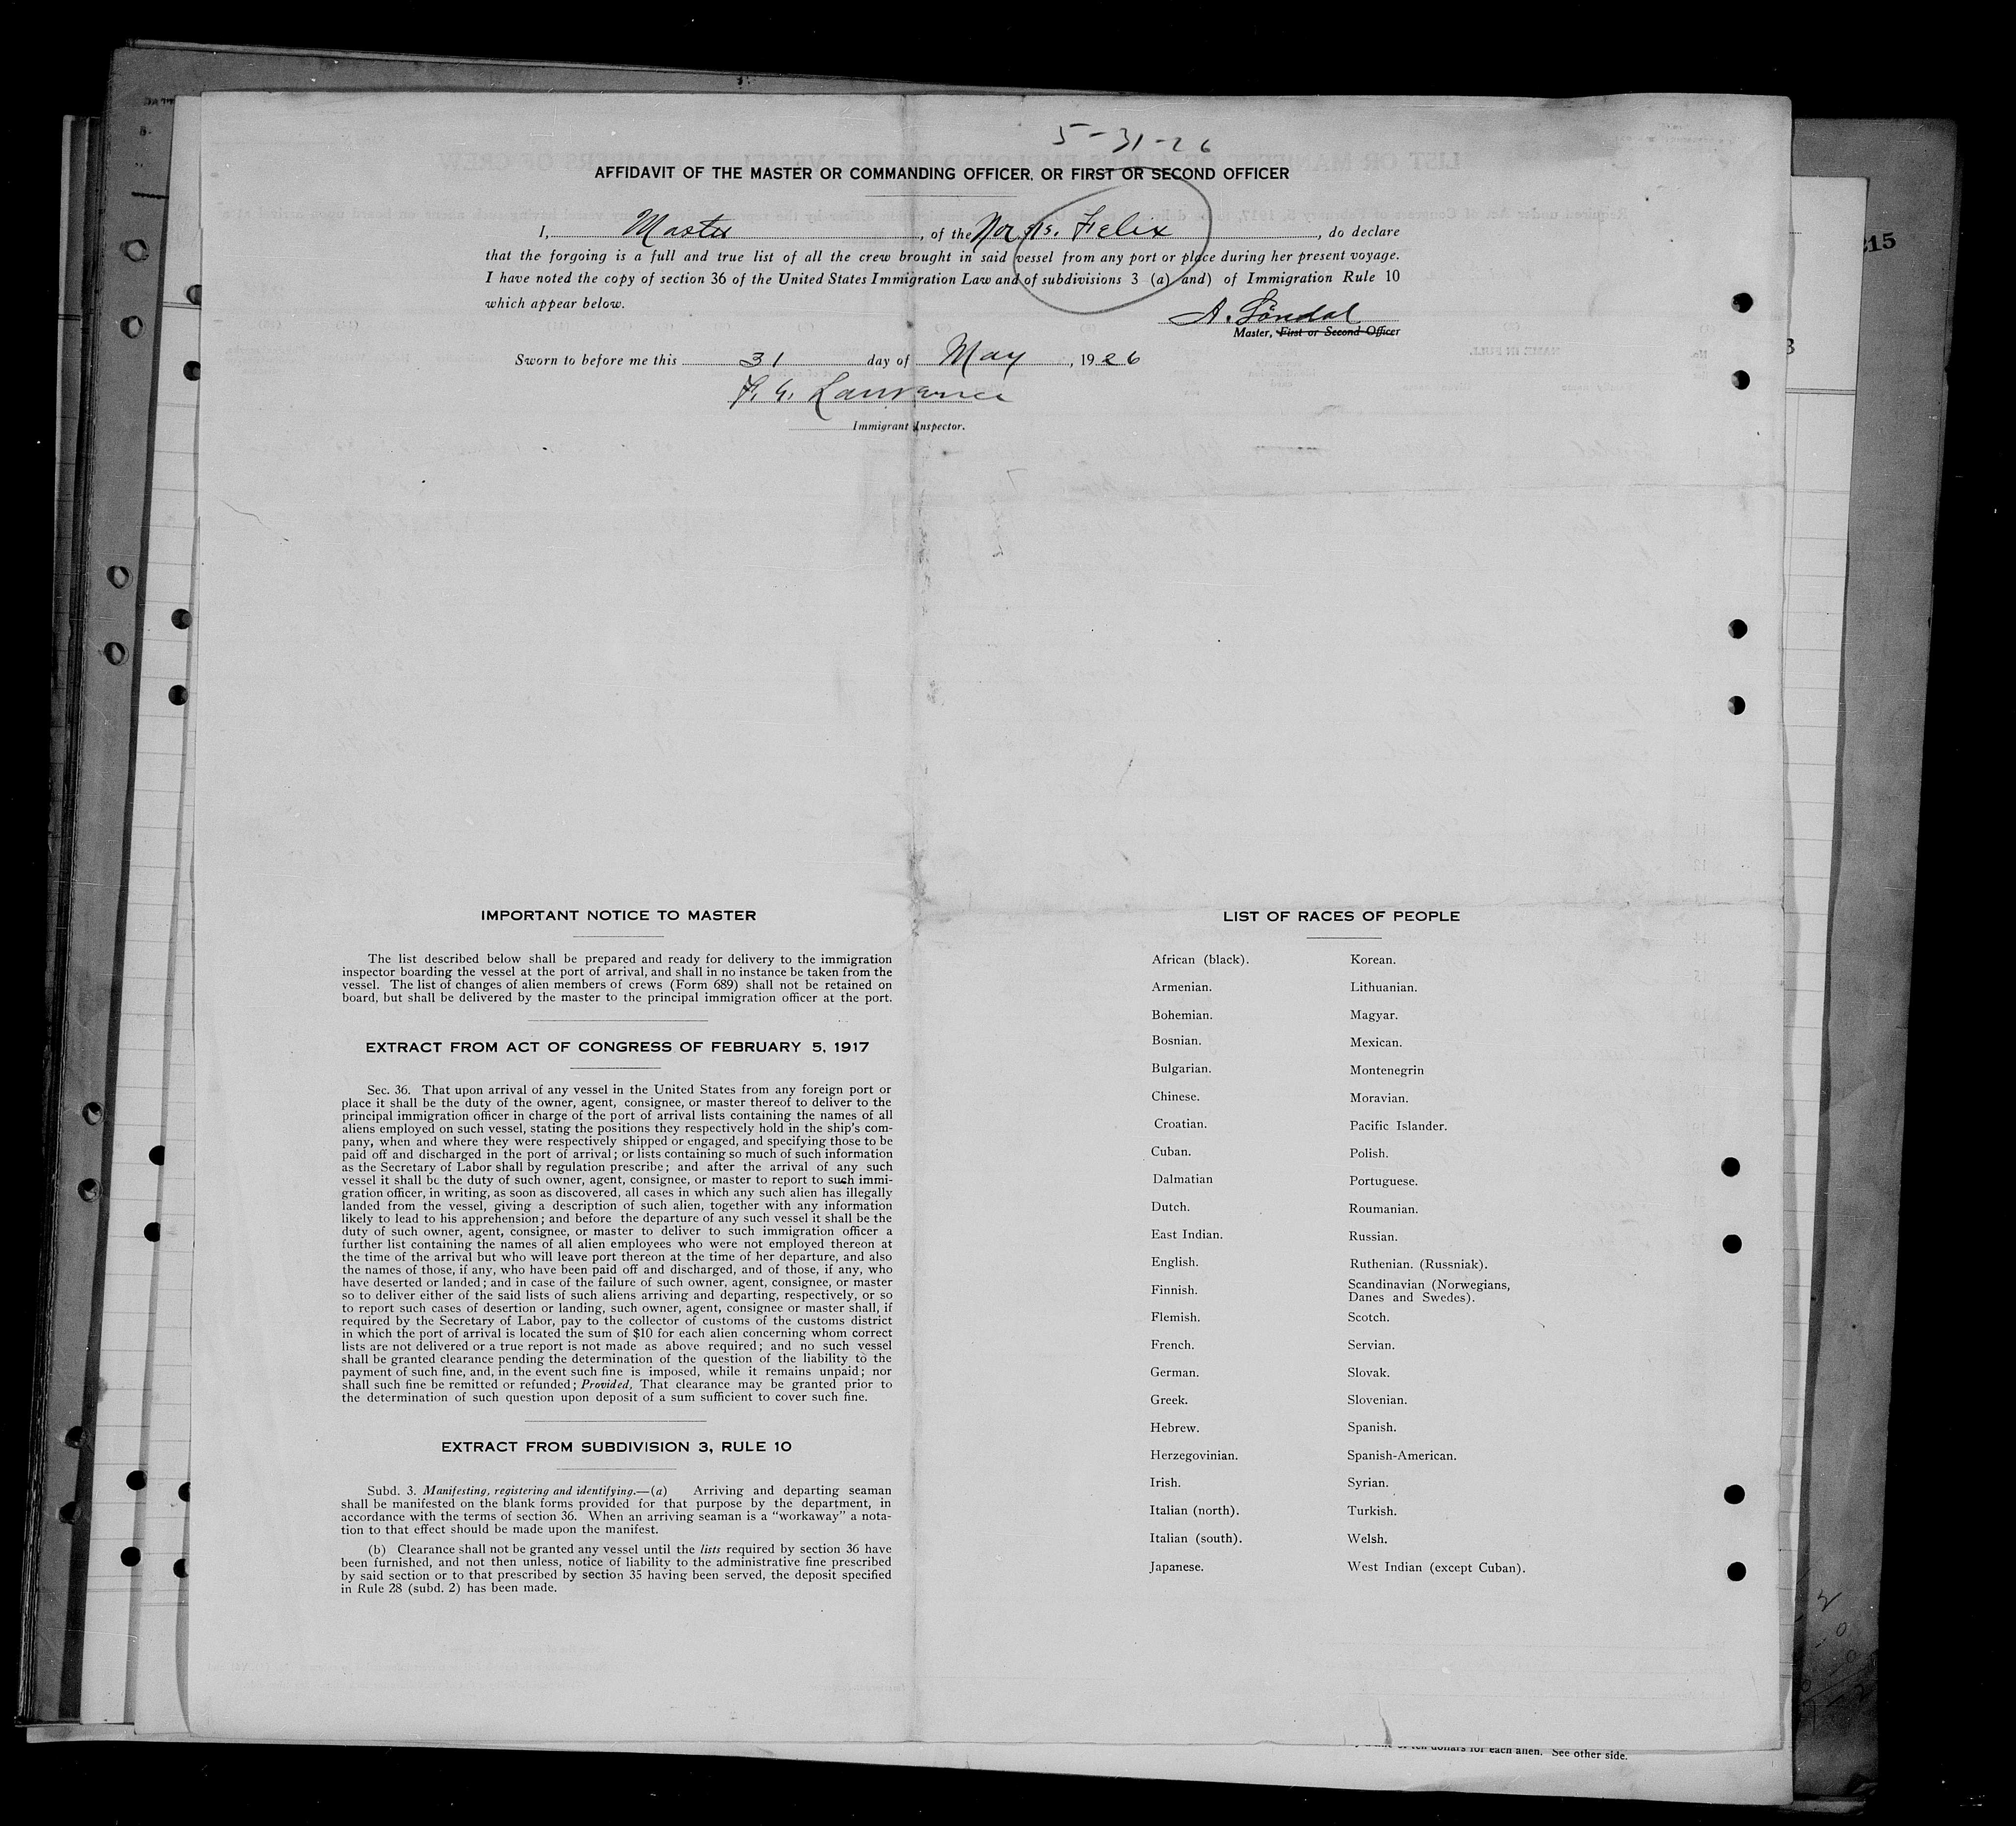 5-31-26
AFFIDAVIT OF THE MASTER OR COMMANDING OFFICER, OR FIRST OR SECOND OFFICER
I, Master, of the Nor. ss. Felix, do declare
that the forgoing is a full and true list of all the crew brought in said vessel from any port or place during her present voyage.
I have noted the copy of section 36 of the United States Immigration Law and of subdivisions 3 (a) and) of Immigration Rule 10
which appear below.
A. Söndal
Master, First or Second Officer
Sworn to before me this 31 day of May, 1926
Lawrance
Immigrant Inspector.
IMPORTANT NOTICE TO MASTER
The list described below shall be prepared and ready for delivery to the immigration
inspector boarding the vessel at the port of arrival, and shall in no instance be taken from the
vessel. The list of changes of alien members of crews (Form 689) shall not be retained on
board, but shall be delivered by the master to the principal immigration officer at the port.
EXTRACT FROM ACT OF CONGRESS OF FEBRUARY 5, 1917
Sec. 36. That upon arrival of any vessel in the United States from any foreign port or
place it shall be the duty of the owner, agent, consignee, or master thereof to deliver to the
principal immigration officer in charge of the port of arrival lists containing the names of all
aliens employed on such vessel, stating the positions they respectively hold in the ship's com-
pany, when and where they were respectively shipped or engaged, and specifying those to be
paid off and discharged in the port of arrival; or lists containing so much of such information
as the Secretary of Labor shall by regulation prescribe; and after the arrival of any such
vessel it shall be the duty of such owner, agent, consignee, or master to report to such immi-
gration officer, in writing, as soon as discovered, all cases in which any such alien has illegally
landed from the vessel, giving a description of such alien, together with any information
likely to lead to his apprehension; and before the departure of any such vessel it shall be the
duty of such owner, agent, consignee, or master to deliver to such immigration officer a
further list containing the names of all alien employees who were not employed thereon at
the time of the arrival but who will leave port thereon at the time of her departure, and also
the names of those, if any, who have been paid off and discharged, and of those, if any, who
have deserted or landed; and in case of the failure of such owner, agent, consignee, or master
so to deliver either of the said lists of such aliens arriving and departing, respectively, or so
to report such cases of desertion or landing, such owner, agent, consignee or master shall, if
required by the Secretary of Labor, pay to the collector of customs of the customs district
in which the port of arrival is located the sum of $10 for each alien concerning whom correct
lists are not delivered or a true report is not made as above required; and no such vessel
shall be granted clearance pending the determination of the question of the liability to the
payment of such fine, and, in the event such fine is imposed, while it remains unpaid; nor
shall such fine be remitted or refunded; Provided, That clearance may be granted prior to
the determination of such question upon deposit of a sum sufficient to cover such fine.
EXTRACT FROM SUBDIVISION 3, RULE 10
Subd. 3. Manifesting, registering and identifying.—(a) Arriving and departing seaman
shall be manifested on the blank forms provided for that purpose by the department, in
accordance with the terms of section 36. When an arriving seaman is a "workaway" a nota-
tion to that effect should be made upon the manifest.
(b) Clearance shall not be granted any vessel until the lists required by section 36 have
been furnished, and not then unless, notice of liability to the administrative fine prescribed
by said section or to that prescribed by section 35 having been served, the deposit specified
in Rule 28 (subd. 2) has been made.
LIST OF RACES OF PEOPLE
African (black).
Armenian.
Bohemian.
Bosnian.
Bulgarian.
Chinese.
Croatian.
Cuban.
Dalmatian
Dutch.
East Indian.
English.
Finnish.
Flemish.
French.
German.
Greek.
Hebrew.
Herzegovinian.
Irish.
Italian (north).
Italian (south).
Japanese.
Korean.
Lithuanian.
Magyar.
Mexican.
Montenegrin
Moravian.
Pacific Islander.
Polish.
Portuguese.
Roumanian.
Russian.
Ruthenian. (Russniak).
Scandinavian (Norwegians,
Danes and Swedes).
Scotch.
Servian.
Slovak.
Slovenian.
Spanish.
Spanish-American.
Syrian.
Turkish.
Welsh.
West Indian (except Cuban).
for each alien. See other side.